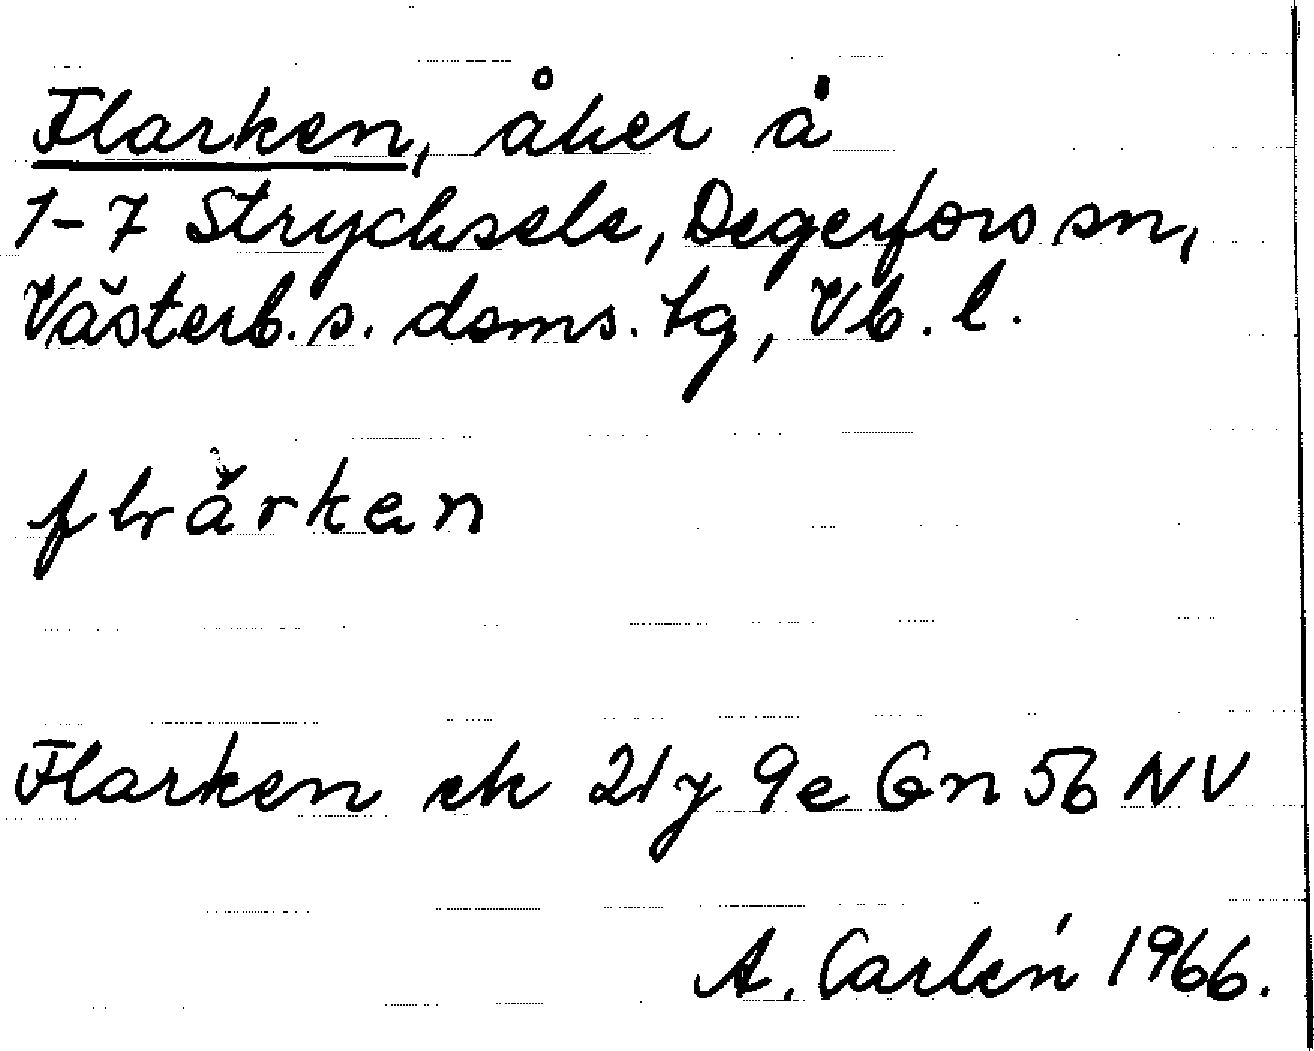 Flarken, åker å
1-7 Strycksele, Degerfors sn,
Västerb. s. doms. tg, Vb. l.
Flarken ek 21 y 9e Gn 56 NV
A. Carlén 1966.